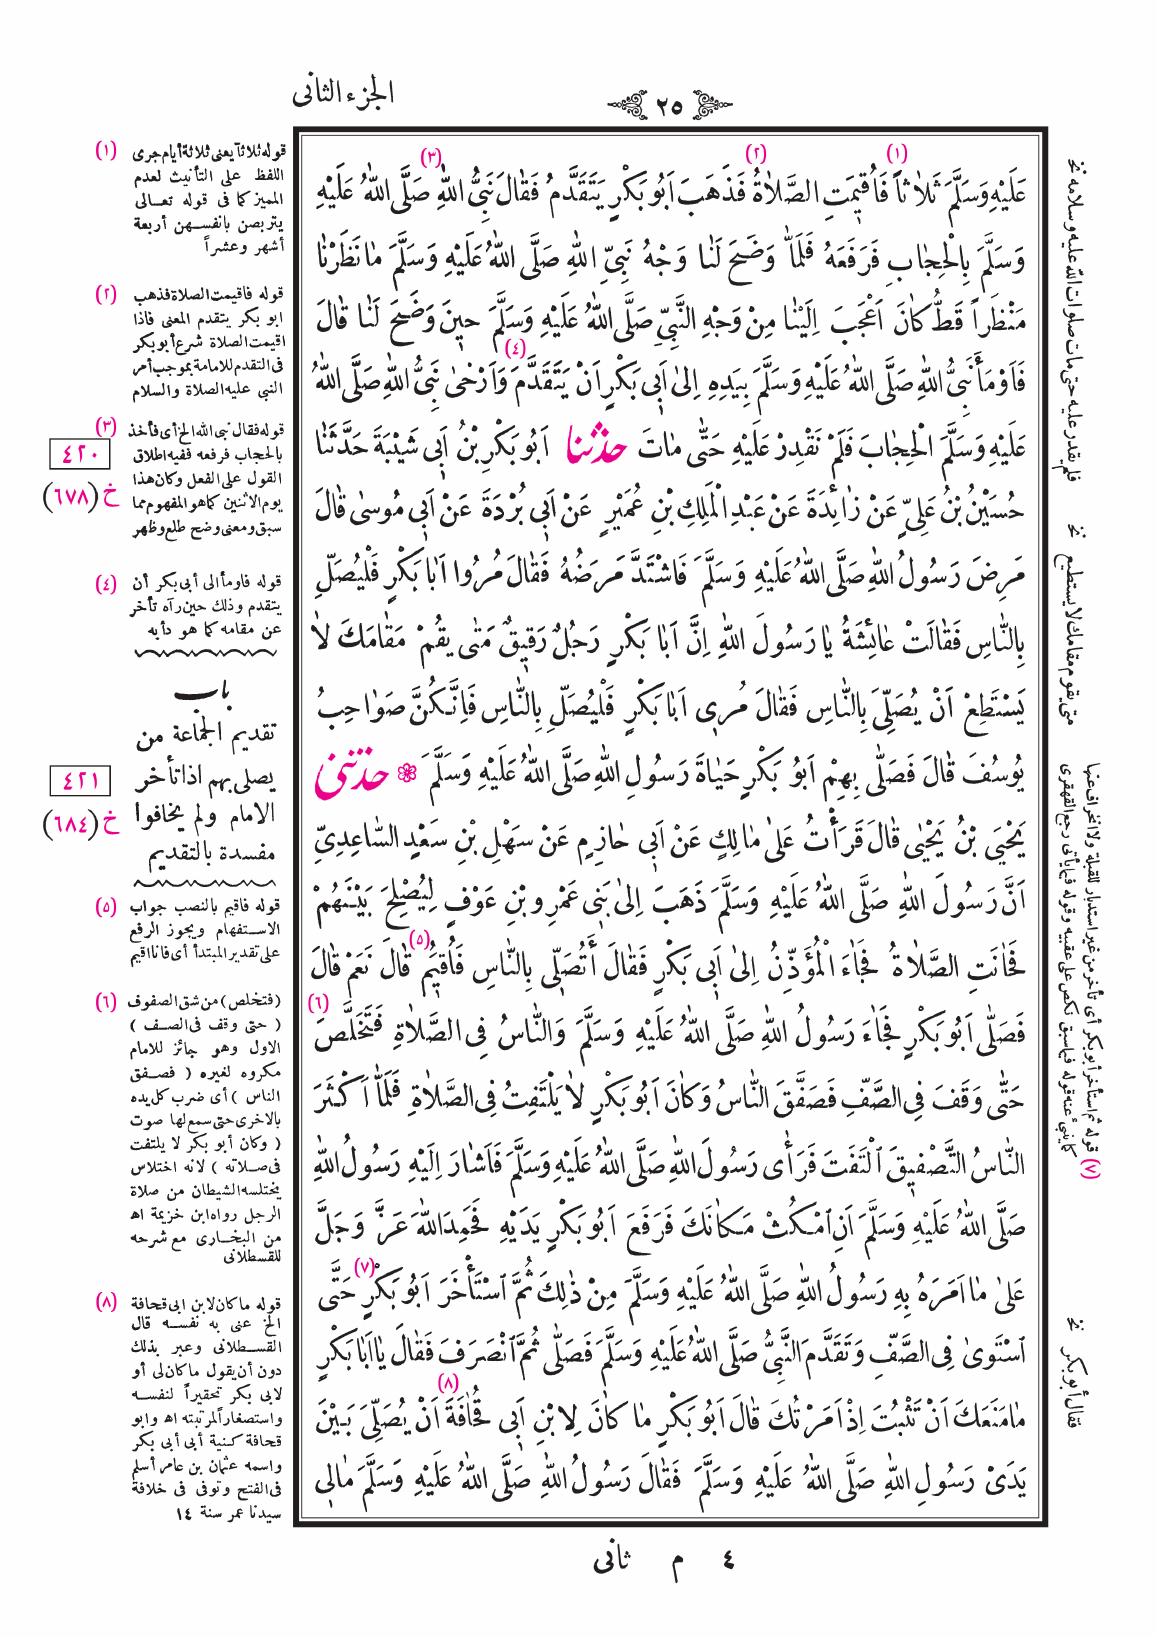 الجزء الثانى
٢٥
عَلَيْهِ وَسَلَّمَ ثَلَاثاً (١) فَاُقِيمَتِ الصَّلَاةُ (٢) فَذَهَبَ اَبُو بَكْرٍ يَتَقَدَّمُ فَقَالَ نَبِىُّ اللهِ (٣) صَلَّى اللهُ عَلَيْهِ
وَسَلَّمَ بِالْحِجَابِ فَرَفَعَهُ فَلَمَّا وَضَحَ لَنَا وَجْهُ نَبِىِّ اللهِ صَلَّى اللهُ عَلَيْهِ وَسَلَّمَ مَا نَظَرْنَا
مَنْظَراً قَطُّ كَانَ اَعْجَبَ اِلَيْنَا مِنْ وَجْهِ النَّبِىِّ صَلَّى اللهُ عَلَيْهِ وَسَلَّمَ حِينَ وَضَحَ لَنَا قَالَ
فَاَوْمَأَ نَبِىُّ اللهِ صَلَّى اللهُ عَلَيْهِ وَسَلَّمَ بِيَدِهِ اِلىٰ اَبِى بَكْرٍ اَنْ يَتَقَدَّمَ (٤) وَاَرْخىٰ نَبِىُّ اللهِ صَلَّى اللهُ
عَلَيْهِ وَسَلَّمَ الْحِجَابَ فَلَمْ نَقْدِرْ عَلَيْهِ حَتّٰى مَاتَ حدثنا اَبُو بَكْرِ بْنُ اَبِى شَيْبَةَ حَدَّثَنَا
حُسَيْنُ بْنُ عَلِىٍّ عَنْ زَائِدَةَ عَنْ عَبْدِ الْمَلِكِ بْنِ عُمَيْرٍ عَنْ اَبِى بُرْدَةَ عَنْ اَبِى مُوسىٰ قَالَ
مَرِضَ رَسُولُ اللهِ صَلَّى اللهُ عَلَيْهِ وَسَلَّمَ فَاشْتَدَّ مَرَضُهُ فَقَالَ مُرُوا اَبَا بَكْرٍ فَلْيُصَلِّ
بِالنَّاسِ فَقَالَتْ عَائِشَةُ يَا رَسُولَ اللهِ اِنَّ اَبَا بَكْرٍ رَجُلٌ رَقِيقٌ مَتٰى يَقُمْ مَقَامَكَ لَا
يَسْتَطِعْ اَنْ يُصَلِّىَ بِالنَّاسِ فَقَالَ مُرِى اَبَا بَكْرٍ فَلْيُصَلِّ بِالنَّاسِ فَاِنَّكُنَّ صَوَاحِبُ
يُوسُفَ قَالَ فَصَلّٰى بِهِمْ اَبُو بَكْرٍ حَيَاةَ رَسُولِ اللهِ صَلَّى اللهُ عَلَيْهِ وَسَلَّمَ ❁ حدثنى
يَحْيَى بْنُ يَحْيىٰ قَالَ قَرَأْتُ عَلىٰ مَالِكٍ عَنْ اَبِى حَازِمٍ عَنْ سَهْلِ بْنِ سَعْدٍ السَّاعِدِىِّ
اَنَّ رَسُولَ اللهِ صَلَّى اللهُ عَلَيْهِ وَسَلَّمَ ذَهَبَ اِلىٰ بَنِى عَمْرِو بْنِ عَوْفٍ لِيُصْلِحَ بَيْنَهُمْ
فَحَانَتِ الصَّلَاةُ فَجَاءَ الْمُؤَذِّنُ اِلىٰ اَبِى بَكْرٍ فَقَالَ أَتُصَلِّى بِالنَّاسِ فَاُقِيمُ (٥) قَالَ نَعَمْ قَالَ
فَصَلّٰى اَبُو بَكْرٍ فَجَاءَ رَسُولُ اللهِ صَلَّى اللهُ عَلَيْهِ وَسَلَّمَ وَالنَّاسُ فِى الصَّلَاةِ فَتَخَلَّصَ (٦)
حَتّٰى وَقَفَ فِى الصَّفِّ فَصَفَّقَ النَّاسُ وَكَانَ اَبُو بَكْرٍ لَا يَلْتَفِتُ فِى الصَّلَاةِ فَلَمَّا اَكْثَرَ
النَّاسُ التَّصْفِيقَ الْتَفَتَ فَرَأَى رَسُولَ اللهِ صَلَّى اللهُ عَلَيْهِ وَسَلَّمَ فَاَشَارَ اِلَيْهِ رَسُولُ اللهِ
صَلَّى اللهُ عَلَيْهِ وَسَلَّمَ اَنِ امْكُثْ مَكَانَكَ فَرَفَعَ اَبُو بَكْرٍ يَدَيْهِ فَحَمِدَ اللهَ عَزَّ وَجَلَّ
عَلىٰ مَا اَمَرَهُ بِهِ رَسُولُ اللهِ صَلَّى اللهُ عَلَيْهِ وَسَلَّمَ مِنْ ذٰلِكَ ثُمَّ اسْتَأْخَرَ اَبُو بَكْرٍ (٧) حَتَّى
اسْتَوىٰ فِى الصَّفِّ وَتَقَدَّمَ النَّبِىُّ صَلَّى اللهُ عَلَيْهِ وَسَلَّمَ فَصَلّٰى ثُمَّ انْصَرَفَ فَقَالَ يَا اَبَا بَكْرٍ
مَا مَنَعَكَ اَنْ تَثْبُتَ اِذْ اَمَرْتُكَ قَالَ اَبُو بَكْرٍ مَا كَانَ لِابْنِ اَبِى قُحَافَةَ (٨) اَنْ يُصَلِّىَ بَيْنَ
يَدَىْ رَسُولِ اللهِ صَلَّى اللهُ عَلَيْهِ وَسَلَّمَ فَقَالَ رَسُولُ اللهِ صَلَّى اللهُ عَلَيْهِ وَسَلَّمَ مَالِى
٤ م ثانى
(١) قوله ثلاثاً يعنى ثلاثة أيام جرى
اللفظ على التأنيث لعدم
المميز كما فى قوله تعالى
يتربصن بانفسهن أربعة
أشهر وعشراً
(٢) قوله فاقيمت الصلاة فذهب
ابو بكر يتقدم المعنى فاذا
اقيمت الصلاة شرع أبو بكر
فى التقدم للامامة بموجب أمر
النبى عليه الصلاة والسلام
(٣) قوله فقال نبى الله الخ أى فأخذ
بالحجاب فرفعه ففيه اطلاق
القول على الفعل وكان هذا
يوم الاثنين كما هو المفهوم مما
سبق ومعنى وضح طلع وظهر
٤٢٠
خ (٦٧٨)
(٤) قوله فاومأ الى أبى بكر أن
يتقدم وذلك حين رآه تأخر
عن مقامه كما هو دأبه
باب
تقديم الجماعة من
يصلى بهم اذا تأخر
الامام ولم يخافوا
مفسدة بالتقديم
٤٢١
خ (٦٨٤)
(٥) قوله فاقيم بالنصب جواب
الاستفهام ويجوز الرفع
على تقدير المبتدأ أى فانا اقيم
(٦) (فتخلص) من شق الصفوف
( حتى وقف فى الصف )
الاول وهو جائز للامام
مكروه لغيره ( فصفق
الناس ) أى ضرب كل يده
بالاخرى حتى سمع لها صوت
( وكان أبو بكر لا يلتفت
فى صلاته ) لانه اختلاس
يختلسه الشيطان من صلاة
الرجل رواه ابن خزيمة اه
من البخارى مع شرحه
للقسطلانى
(٨) قوله ما كان لابن ابى قحافة
الخ عنى به نفسه قال
القسطلانى وعبر بذلك
دون أن يقول ما كان لى أو
لابى بكر تحقيراً لنفسه
واستصغاراً لمرتبته اه وابو
قحافة كنية أبى أبى بكر
واسمه عثمان بن عامر أسلم
فى الفتح وتوفى فى خلافة
سيدنا عمر سنة ١٤
فلم يقدر عليه حتى مات صلوات الله عليه وسلامه نخ
متى يقوم مقامك لا يستطيع نخ
(٧) قوله ثم استأخر أبو بكر أى تأخر من غير استدبار للقبلة ولا انحراف عنها
كما ينبئ عنه قوله فيما سبق نكص على عقبيه وقوله فيما يأتى رجع القهقرى
فقال أبو بكر نخ